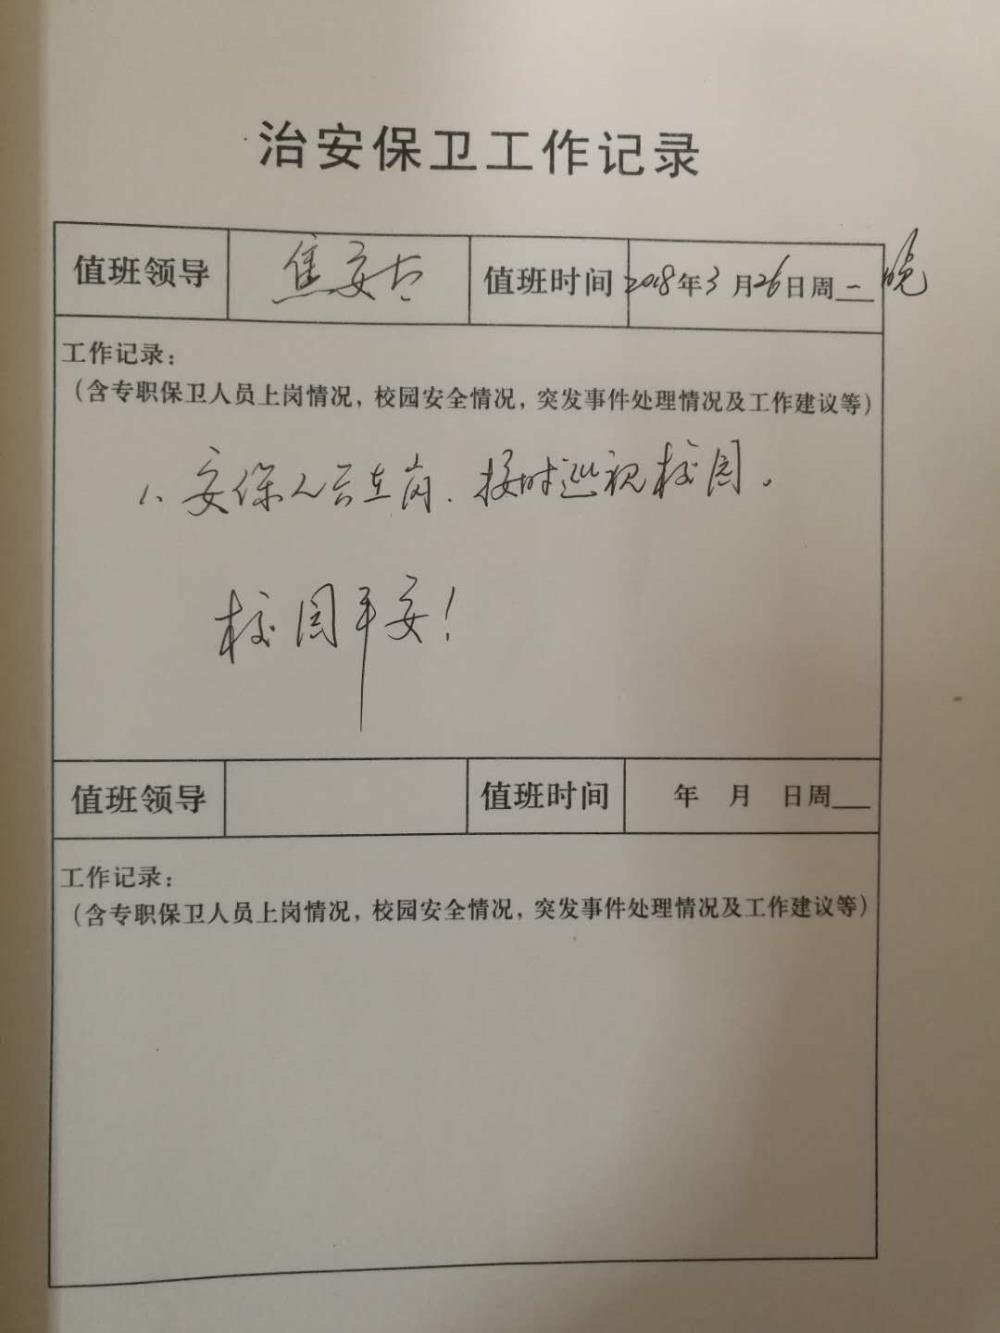 治安保卫工作记录
值班领导 焦安 值班时间 2018年3月26日周一 晚
工作记录：
（含专职保卫人员上岗情况，校园安全情况，突发事件处理情况及工作建议等）
1、安保人员在岗、按时巡视校园。
校园平安！
值班领导 值班时间 年 月 日周
工作记录：
（含专职保卫人员上岗情况，校园安全情况，突发事件处理情况及工作建议等）